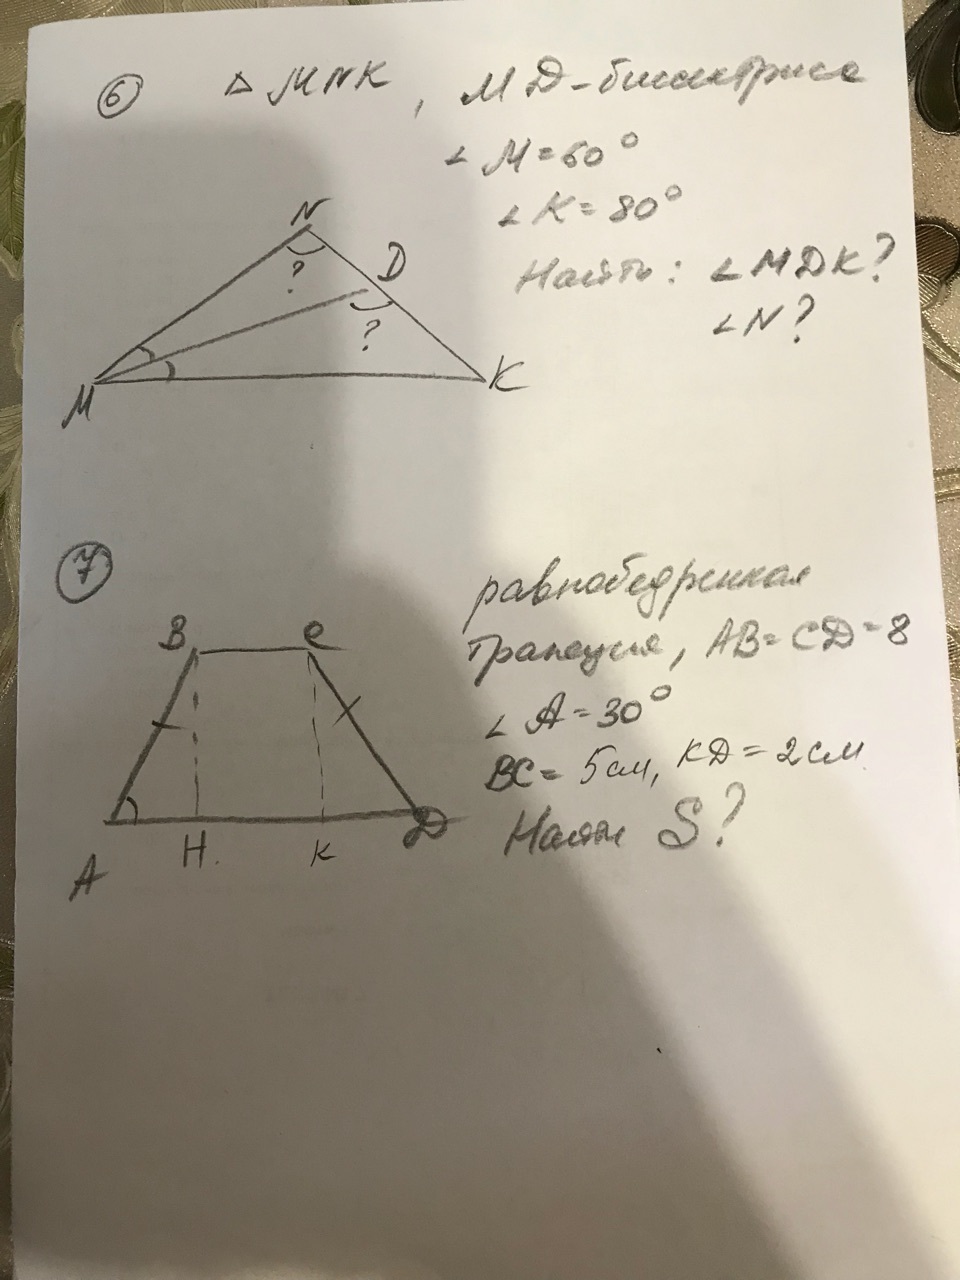 6 △ MNK, MD-биссектриса
∠ M = 60°
∠ K = 80°
Найти: ∠ MDK?
∠ N?
N
D
?
?
M
K
7
равнобедренная
трапеция, AB = CD = 8
∠ A = 30°
BC = 5 см, KD = 2 см
Найти S?
B
C
A
H.
K
D